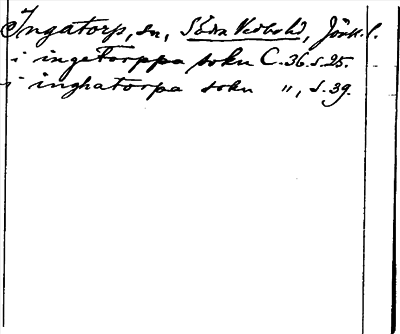 Ingatorp, sn, Södra Vedbohd, Jönk. l.
i ingetorppa sokn C. 36. s. 25.
i inghatorpa sokn ", s. 39.